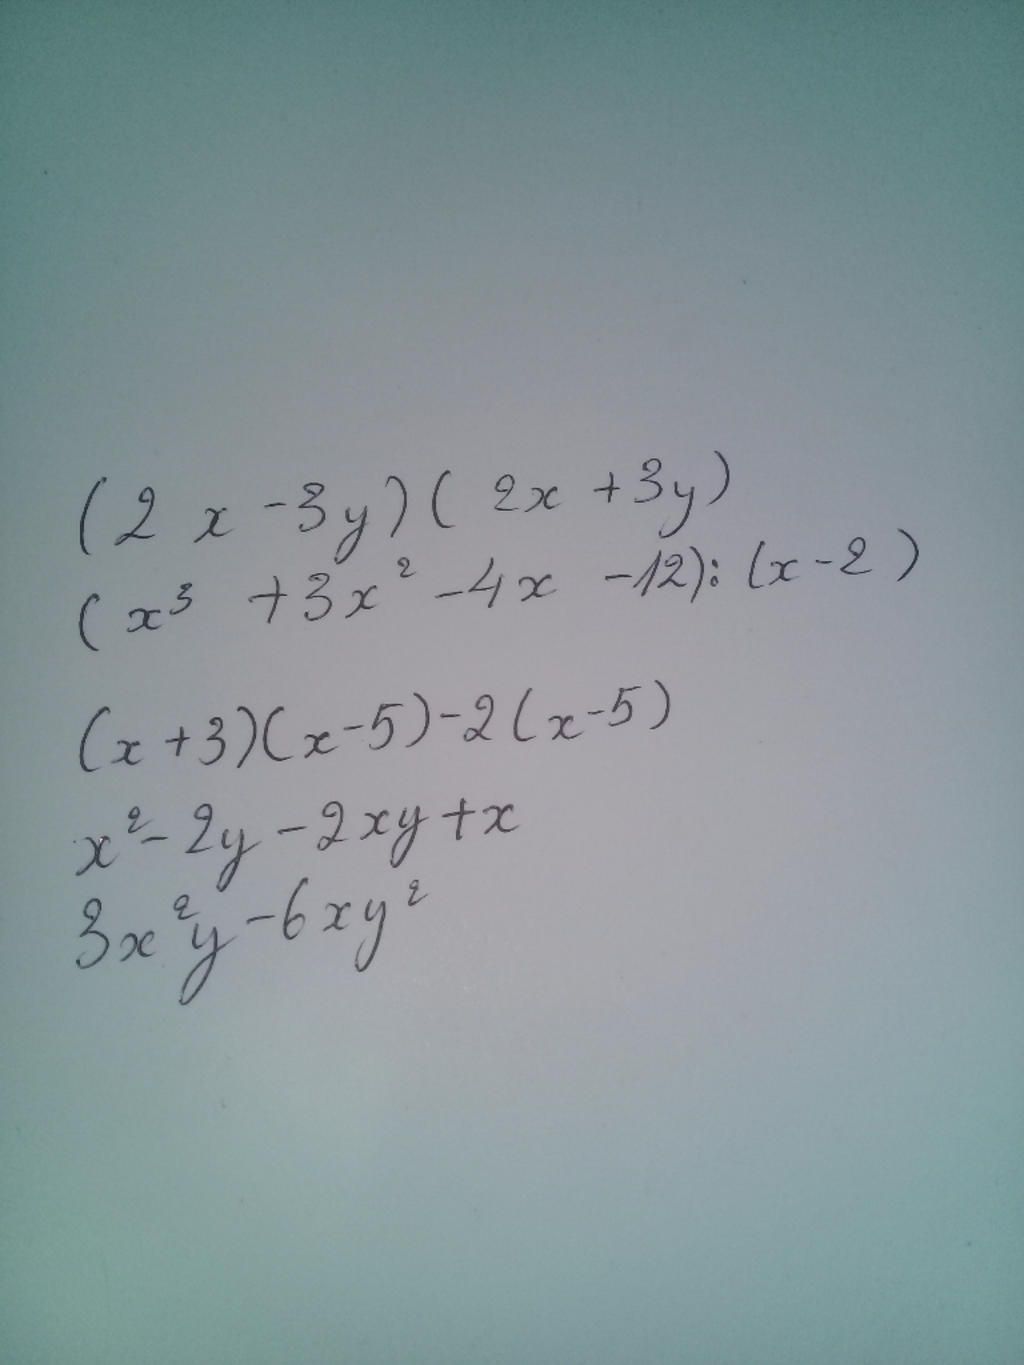 (2x-3y)(2x+3y)
(x³+3x²-4x-12):(x-2)
(x+3)(x-5)-2(x-5)
x²-2y-2xy+x
3x²y-6xy²